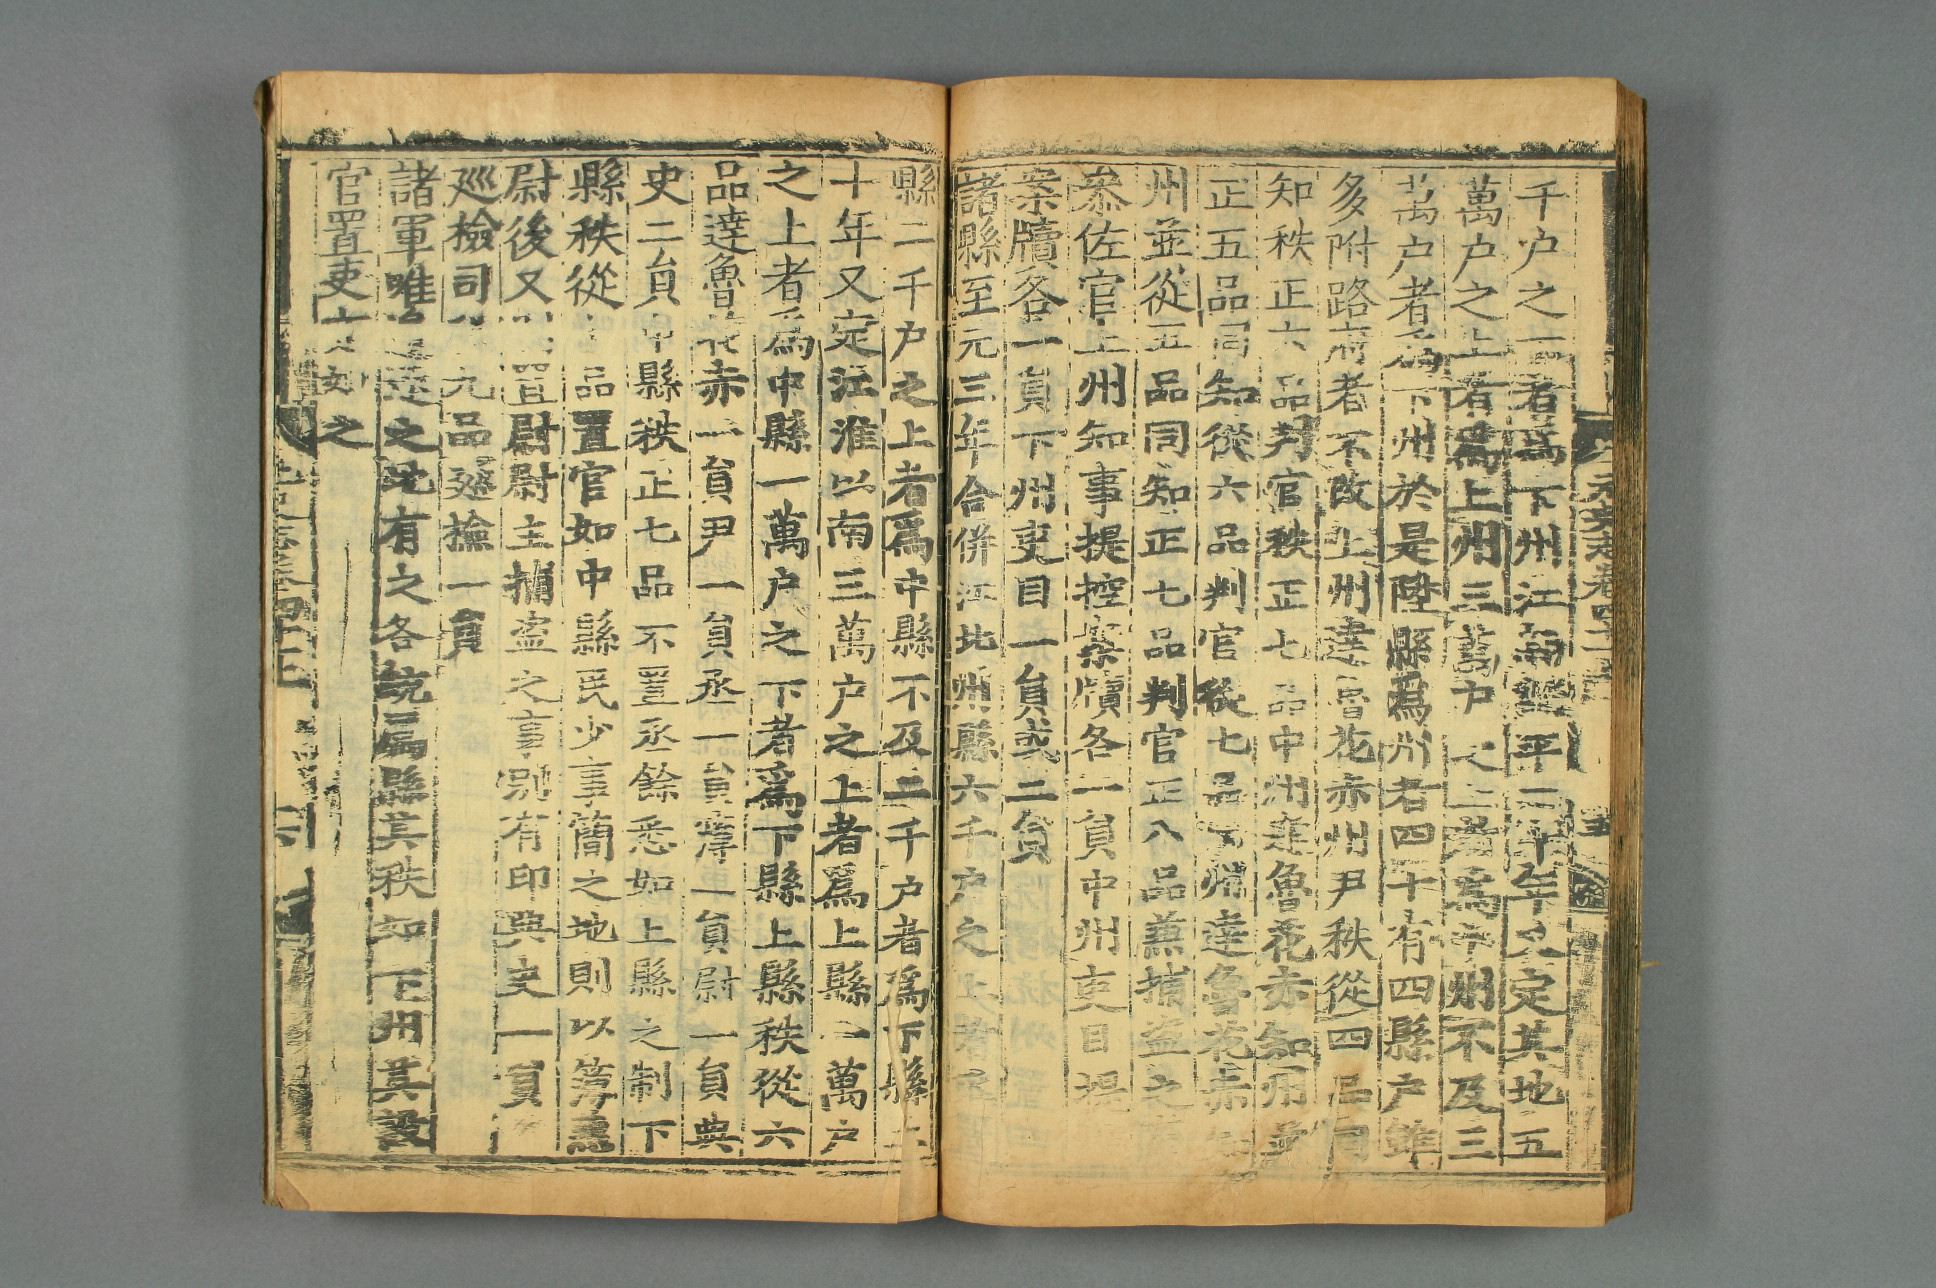 千户之上者爲下州江南旣平二十年又定其地五
萬户之上者爲上州三萬户之上者爲中州不及三
萬户者爲下州於是陞縣爲州者四十有四縣户雖
多附路府者不改上州達魯花赤州尹秩從四品同
知秩正六品判官秩正七品中州達魯花赤知州並
正五品同知從六品判官從七品下州達魯花赤知
州並從五品同知正七品判官正八品兼捕盜之
叅佐官上州知事提控案牘各一員中州吏目提
案牘各一員下州吏目一員或二員
諸縣至元三年合併江北州縣六千户之上者爲上
縣二千户之上者爲中縣不及二千户者爲下縣二
十年又定江淮以南三萬户之上者爲上縣一萬户
之上者爲中縣一萬户之下者爲下縣上縣秩從六
品達魯花赤一員尹一員丞一員簿一員尉一員典
史二員中縣秩正七品不置丞餘悉如上縣之制下
縣秩從品置官如中縣民少事簡之地則以簿兼
尉後又置尉尉主捕盜之事别有印典史一員
廵檢司九品廵檢一員
諸軍唯邊遠之地有之各統屬縣其秩如下州其設
官置吏亦如之
元史志卷四十一
元史志卷四十一
六